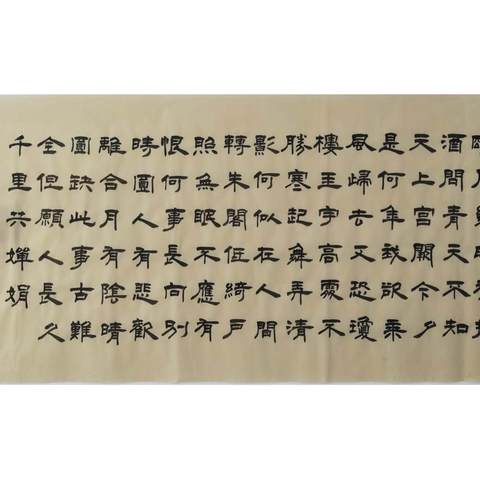 酒問青天不知
天上宮闕今夕
是何年我欲乘
風歸去又恐瓊
樓玉宇高處不
勝寒起舞弄清
影何似在人間
轉朱閣低綺戶
照無眠不應有
恨何事長向別
時圓人有悲歡
離合月有陰晴
圓缺此事古難
全但願人長久
千里共嬋娟